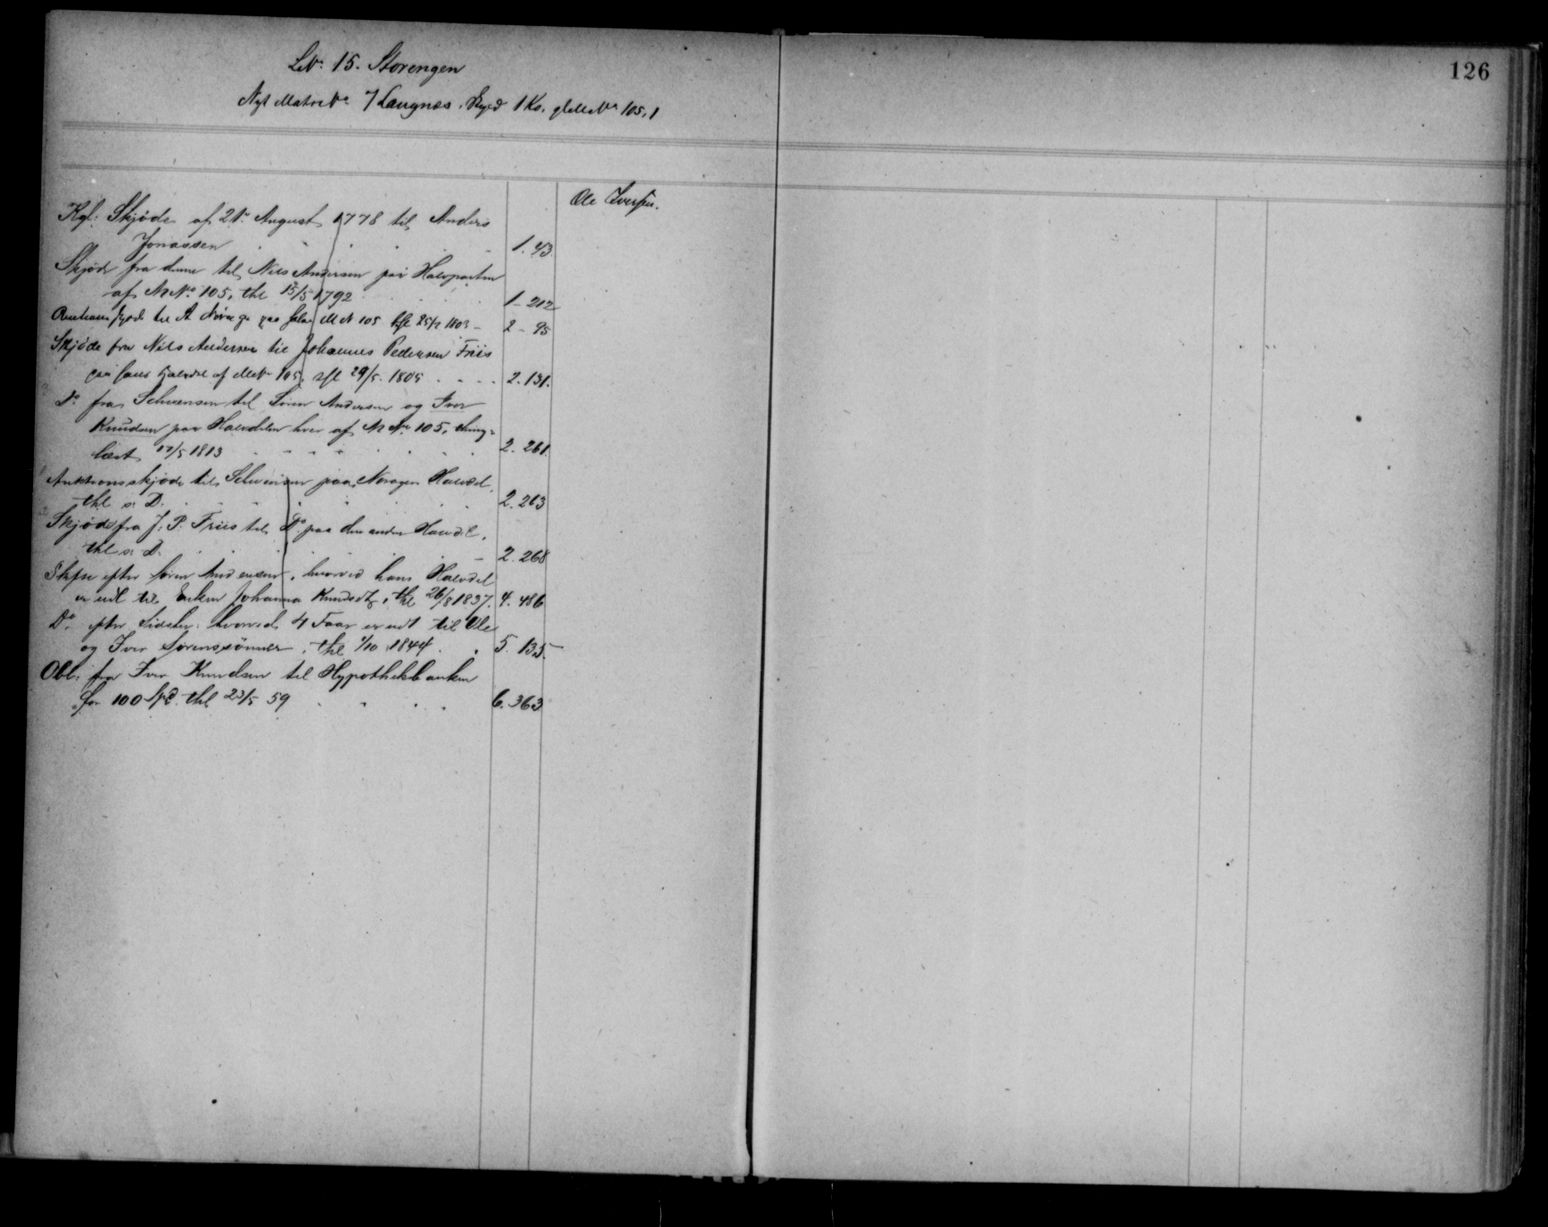 126
LNo. 15. Storengen
Nyt Matr No. 7 Langnæs. Skyld 1 Kr. gl MNo 105,1
Ole Iversen.
Kgl. Skjøde af 21de August 1778 til Anders
Jonassen 1. 43
Skjøde fra denne til Nils Andersen paa Halvparten
af M No. 105, thl 15/5 1792 1 - 212
Auctionsskjøde til A paa halve M N 105 1803 - 2 - 95
Skjøde fra Nils Andersen til Johannes Pedersen Friis
paa hans halvdel af MNo 105, 29/5. 1805 2. 131.
Do. fra Schwensen til Søren Andersen og Iver
Knudsen paa Halvdelen hver af M No. 105, thing-
læst 1813 2. 261
Auktionsskjøde til Schwensen paa Halvdel,
thl s. D. 2. 263
Skjøde fra J. P. Friis til Do. paa den anden Halvdel,
thl s. D. 2. 268
Skfte efter Søren Andersen, hvorved hans Halvdel
er udl til Enken Johanna Knudsdtr, thl 26/8 1837. 4. 486
Do. efter Sidstn. hvorved 4 Faar er udt til Ole
og Iver Sørenssønner, thl 1/10 1844. 5. 135
Obl. fra Iver Knudsen til Hypothekbanken
for 100 Spd. thl 23/5 59 6. 363